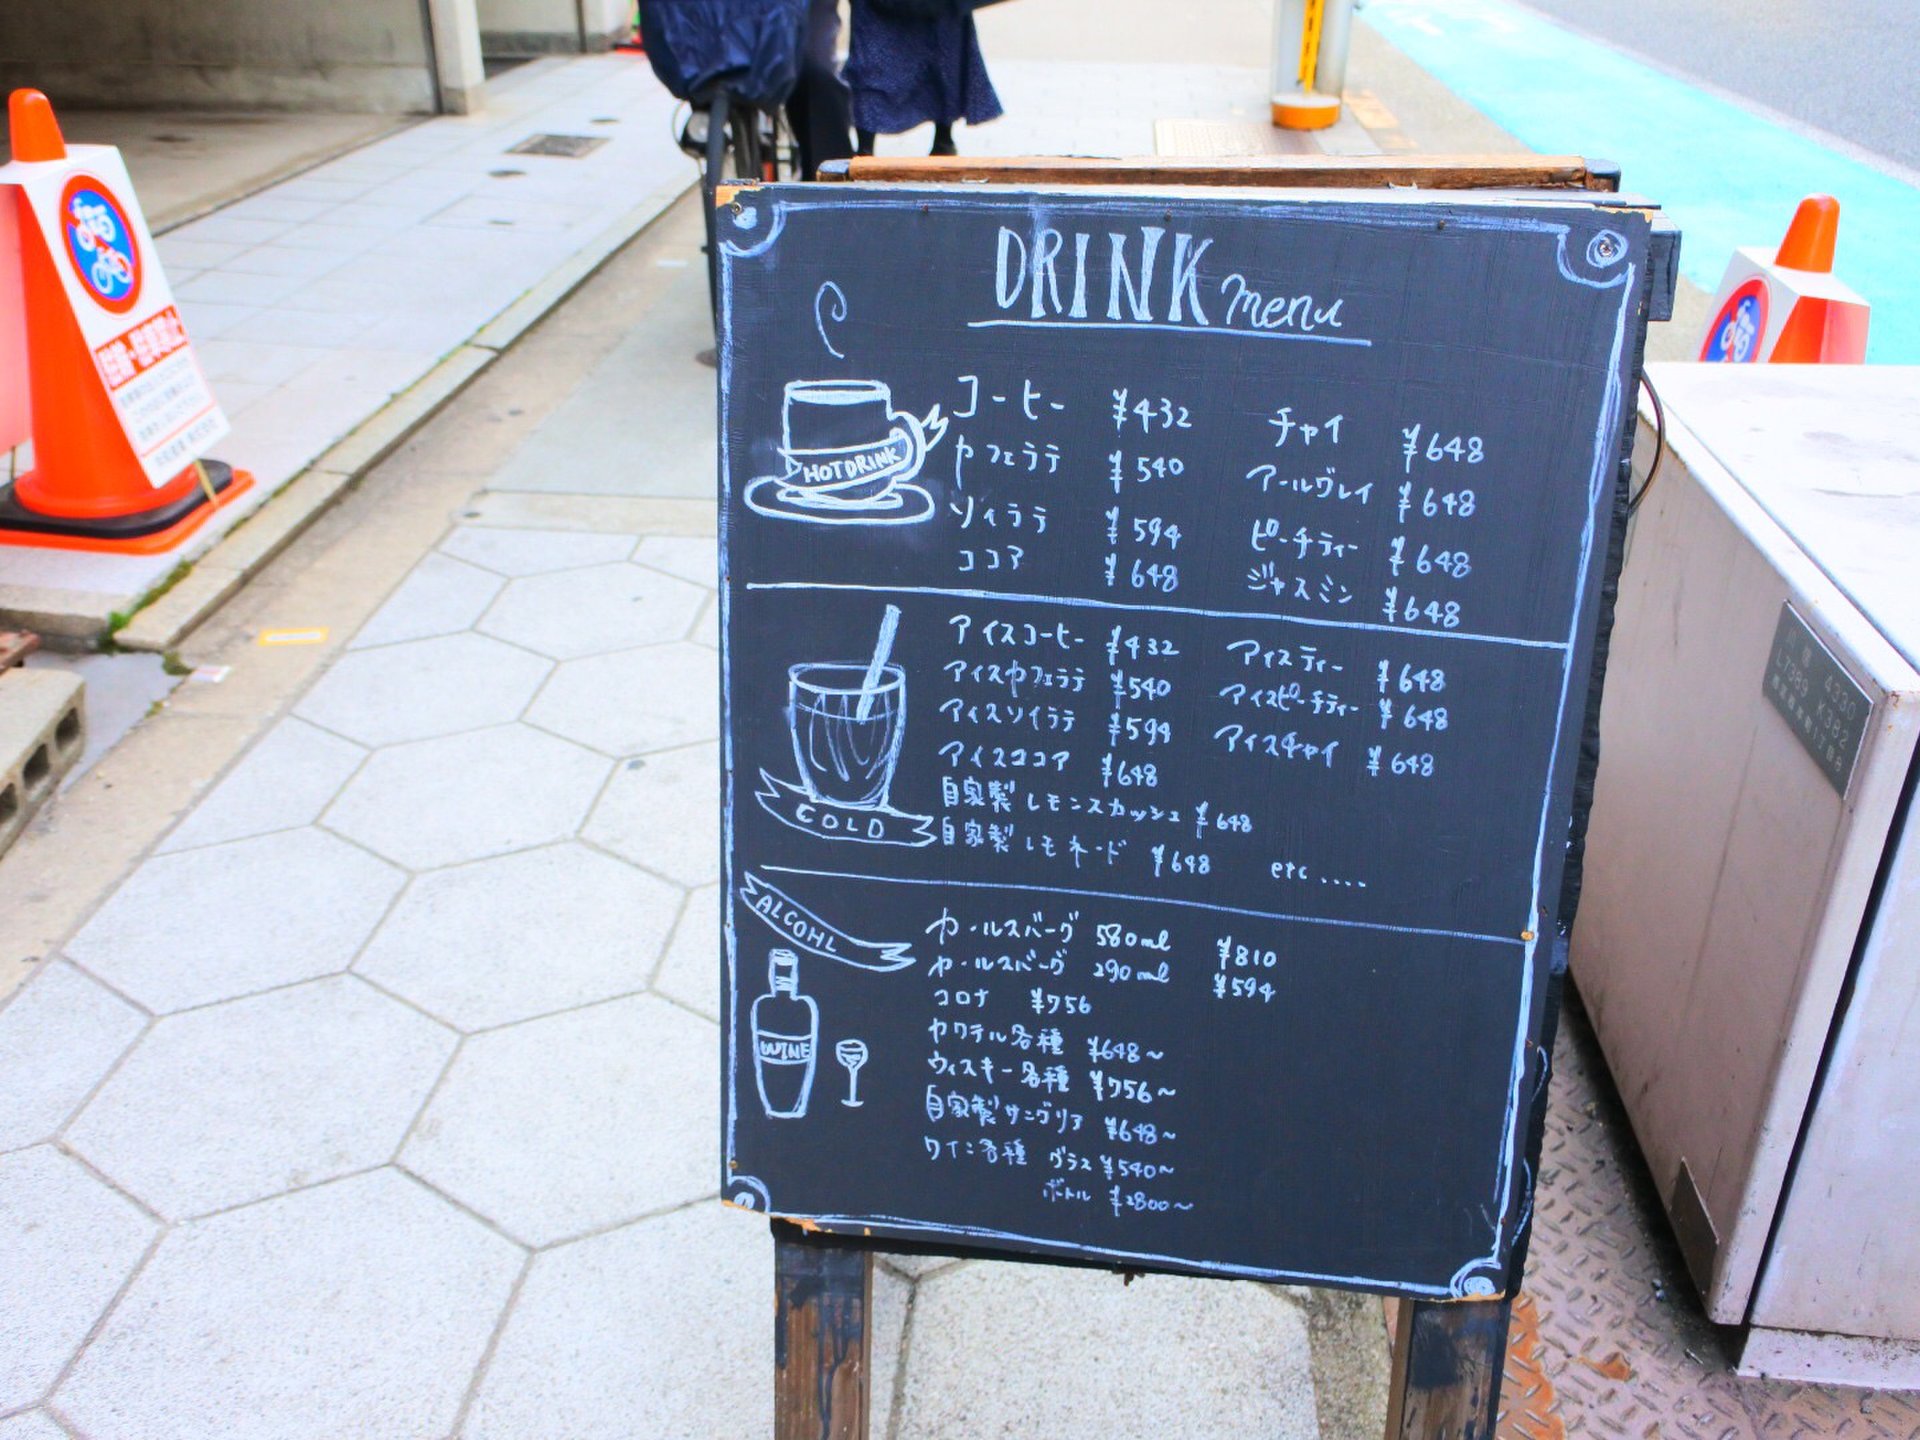 DRINK menu
HOT DRINK
コーヒー ¥432
カフェラテ ¥540
ソイラテ ¥594
ココア ¥648
チャイ ¥648
アールグレイ ¥648
ピーチティー ¥648
ジャスミン ¥648
COLD
アイスコーヒー ¥432
アイスカフェラテ ¥540
アイスソイラテ ¥594
アイスココア ¥648
自家製レモンスカッシュ ¥648
自家製レモネード ¥648
アイスティー ¥648
アイスピーチティー ¥648
アイスチャイ ¥648
etc ....
ALCOHL
WINE
カールスバーグ 580ml ¥810
カールスバーグ 290ml ¥594
コロナ ¥756
カクテル各種 ¥648~
ウィスキー各種 ¥756~
自家製サングリア ¥648~
ワイン各種 グラス ¥540~
ボトル ¥2800~
駐輪・駐車禁止
4330
L7389 K382